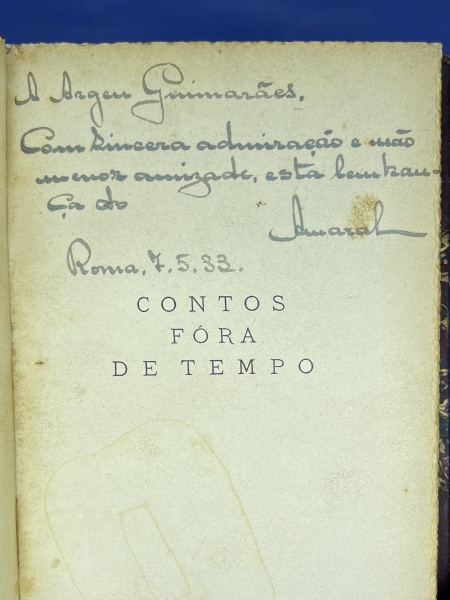 A Argeu Guimarães,
Com sincera admiração e não
menor amizade, esta lembran-
ça do
Amaral
Roma, 7.5.33.
CONTOS
FÓRA
DE TEMPO